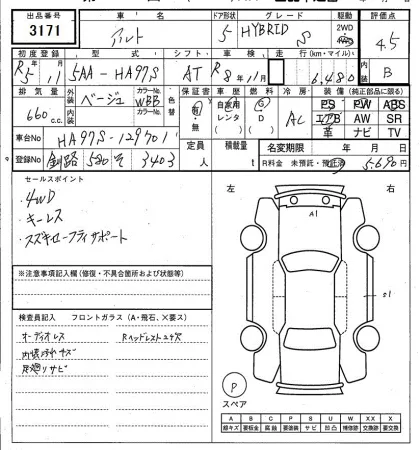 出品番号 車名 ドア形状 グレード 駆動 評価点
3171 アルト 5 HYBRID S 2WD 4WD 4.5
初度登録 型式 シフト 車検 走行(km・マイル) 内装
R5 11 5AA-HA97S AT R8年11月 6,480 B
排気量 外装 ベージュ カラーNo. WBB 色替 保証書 車歴 燃料 冷房 装備(純正部品に限る)
660cc 内装 カラーNo. 有 無 自家用 レンタ G D AC PS PW ABS
エアB AW SR
革 ナビ TV
車台No HA97S-129701 定員 人 積載量 t 名変期限 年 月 日
登録No 釧路 580 そ 3403 R料金 未預託・預託済 5,690円
セールスポイント
・4WD
・キーレス
・スズキセーフティサポート
左 右
A1
※注意事項記入欄(修復・不具合箇所および状態等)
検査員記入 フロントガラス(A・飛石、×要ス)
オーディオレス Rヘッドレスト欠
内装汚れキズ
足廻リサビ
P
スペア
A B C P S U W X XX
線キズ 要板金 腐蝕 要塗装 サビ 凹凸 補修跡 要交換 交換済